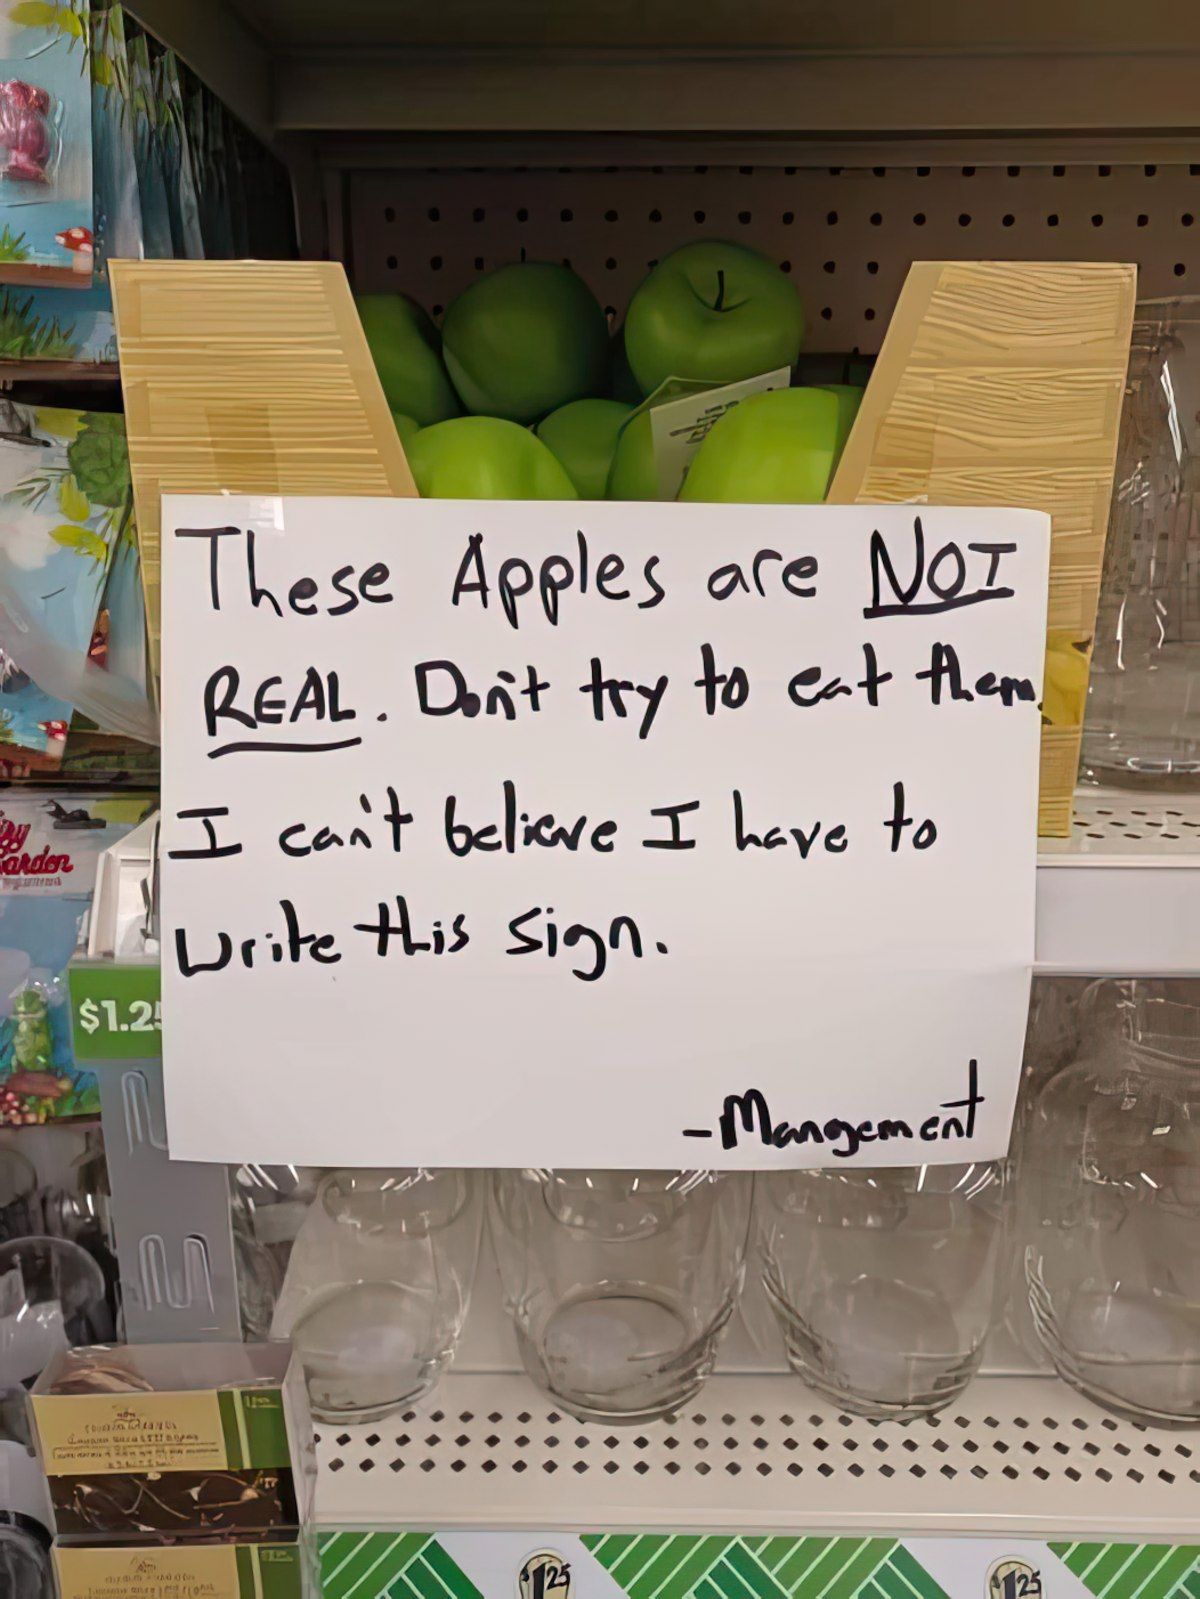 These Apples are NOT
REAL. Don't try to eat them.
I can't believe I have to
write this sign.
-Mangement
$1.25
Garden
$1.25
$1.25